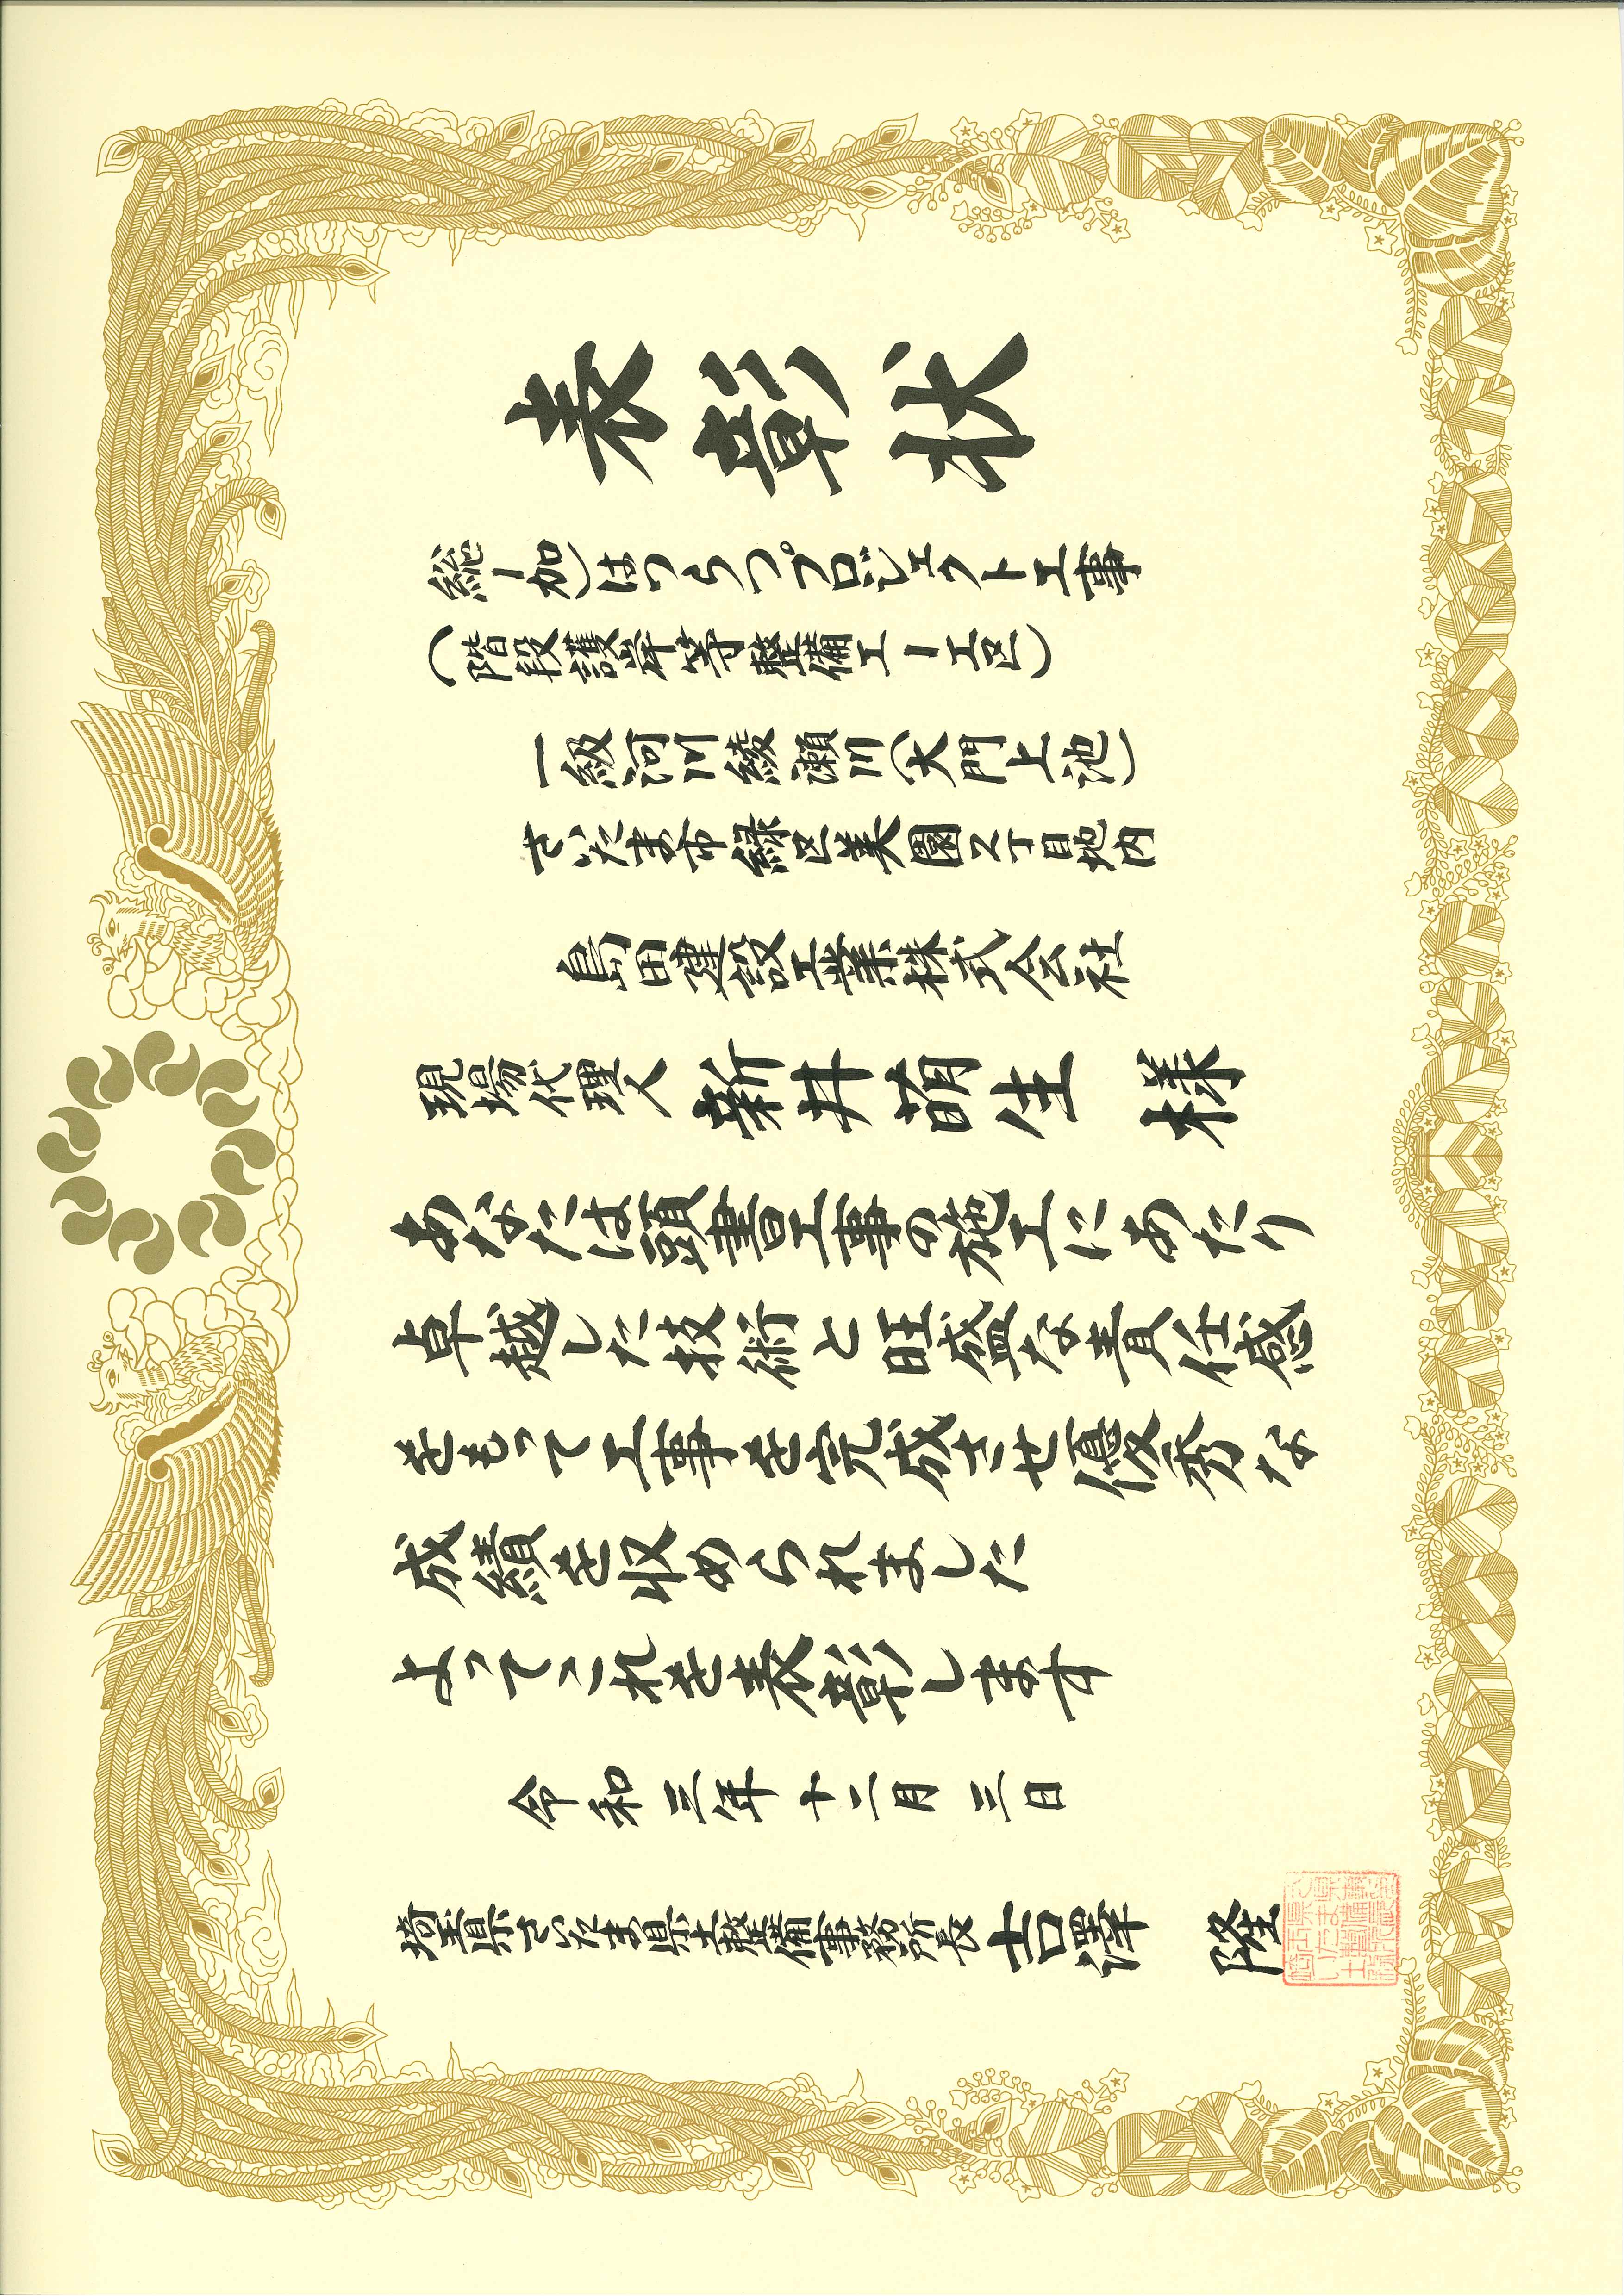 表彰状
総Ⅰ加)はつらつプロジェクト工事
(階段護岸等整備工Ⅰ工区)
一級河川綾瀬川(大門上池)
さいたま市緑区美園2丁目地内
島田建設工業株式会社
現場代理人 新井萌生 様
あなたは頭書工事の施工にあたり
卓越した技術と旺盛な責任感
をもって工事を完成させ優秀な
成績を収められました
よってこれを表彰します
令和三年十二月三日
埼玉県さいたま県土整備事務所長 吉澤 隆